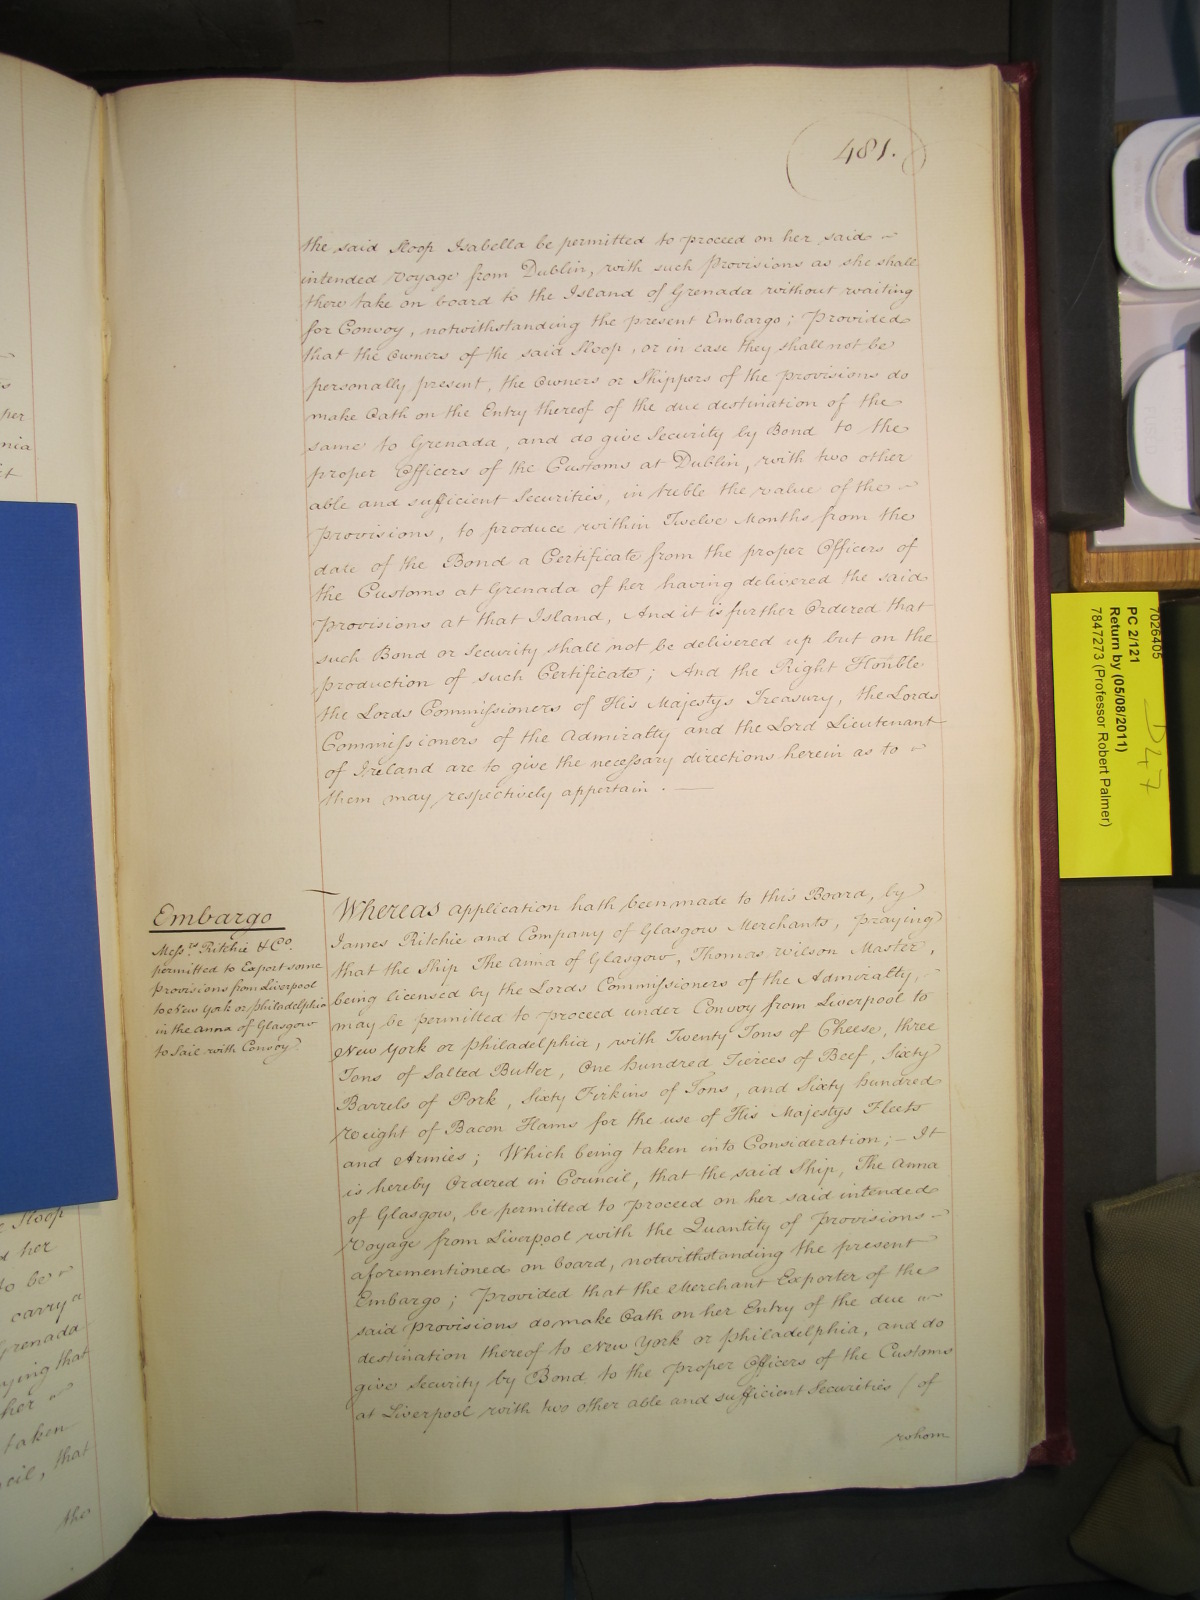 481.
the said Sloop Isabella be permitted to proceed on her said
intended Voyage from Dublin, with such Provisions as she shall
there take on board to the Island of Grenada without waiting
for Convoy, notwithstanding the present Embargo; Provided
that the Owners of the said Sloop, or in case they shall not be
personally present, the Owners or Shippers of the Provisions do
make Oath on the Entry thereof of the due destination of the
same to Grenada, and do give Security by Bond to the
proper Officers of the Customs at Dublin, with two other
able and sufficient Securities, in treble the value of the
Provisions, to produce within Twelve Months from the
date of the Bond a Certificate from the proper Officers of
the Customs at Grenada of her having delivered the said
Provisions at that Island, And it is further Ordered that
such Bond or Security shall not be delivered up but on the
production of such Certificate; And the Right Honble
the Lords Commissioners of His Majestys Treasury, the Lords
Commissioners of the Admiralty and the Lord Lieutenant
of Ireland are to give the necessary directions herein as to
them may respectively appertain.
Embargo
Messrs. Ritchie & Co.
permitted to Export some
Provisions from Liverpool
to New York or Philadelphia
in the Anna of Glasgow
to Sail with Convoy
Whereas application hath been made to this Board, by
James Ritchie and Company of Glasgow Merchants, praying
that the Ship The Anna of Glasgow, Thomas Wilson Master,
being licensed by the Lords Commissioners of the Admiralty,
may be permitted to proceed under Convoy from Liverpool to
New York or Philadelphia, with Twenty Tons of Cheese, three
Tons of Salted Butter, One hundred Tierces of Beef, Sixty
Barrels of Pork, Sixty Firkins of Tons, and Sixty hundred
weight of Bacon Hams for the use of His Majestys Fleets
and Armies; Which being taken into Consideration; - It
is hereby Ordered in Council, that the said Ship, The Anna
of Glasgow, be permitted to proceed on her said intended
Voyage from Liverpool with the Quantity of Provisions
aforementioned on board, notwithstanding the present
Embargo; Provided that the Merchant Exporter of the
said Provisions do make Oath on her Entry of the due
destination thereof to New York or Philadelphia, and do
give Security by Bond to the Proper Officers of the Customs
at Liverpool with two other able and sufficient Securities (of
whom
per
nia
it
Sloop
d her
to be
carry a
Grenada
ying that
her
taken
cil, that
the
7026405
PC 2/121
Return by (05/08/2011)
7847273 (Professor Robert Palmer)
D47